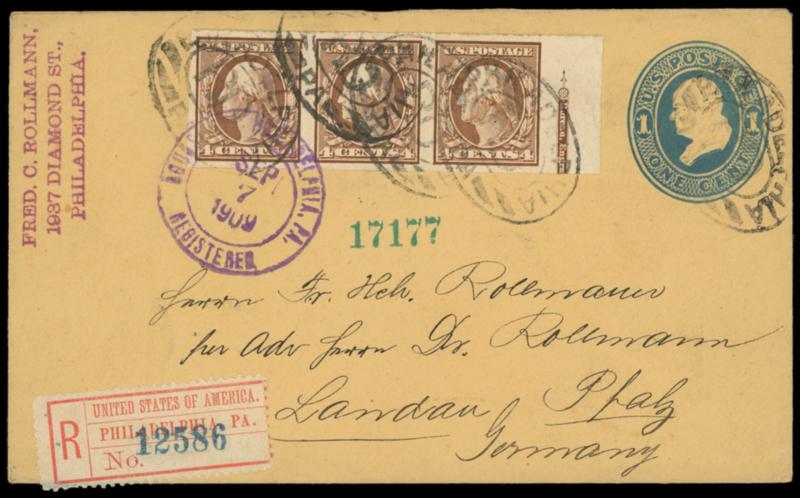 FRED. C. ROLLMANN,
1937 DIAMOND ST.,
PHILADELPHIA.
U.S. POSTAGE
4 CENTS 4
U.S. POSTAGE
4 CENTS 4
U.S. POSTAGE
4 CENTS 4
U.S. POSTAGE
1 1
ONE CENT
PHILADELPHIA, PA.
SEP
7
1909
REGISTERED
17177
Herrn Fr. Hch. Rollmauer
per Adr Herrn Dr. Rollmann
Landau Pfalz
Germany
R
UNITED STATES OF AMERICA.
PHILADELPHIA, PA.
No. 12586